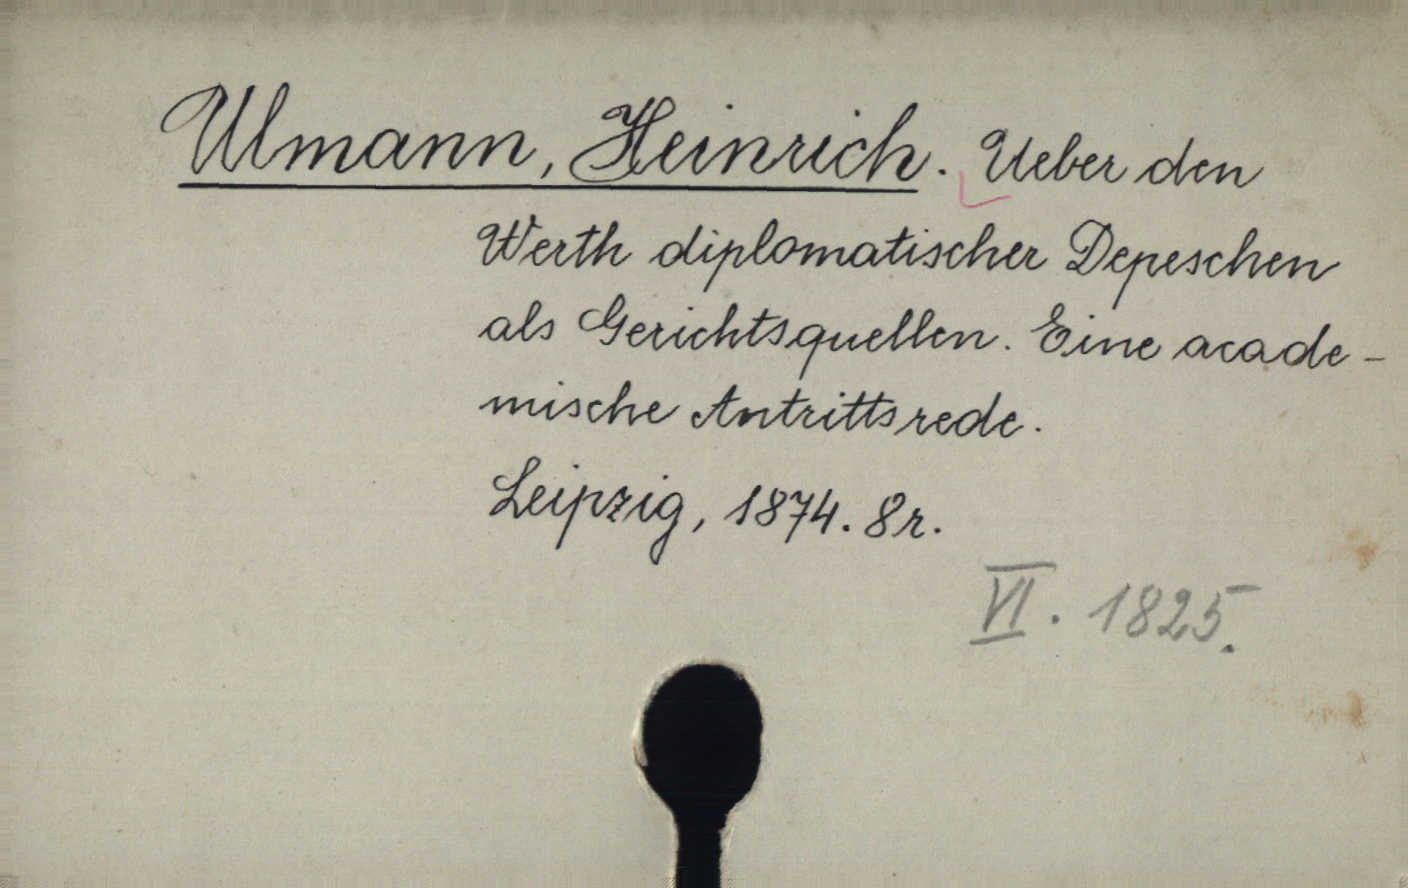 Ulmann, Heinrich. Ueber den
Werth diplomatischer Depeschen
als Gerichtsquellen. Eine acade-
mische Antrittsrede.
Leipzig, 1874. 8r.
VI. 1825.